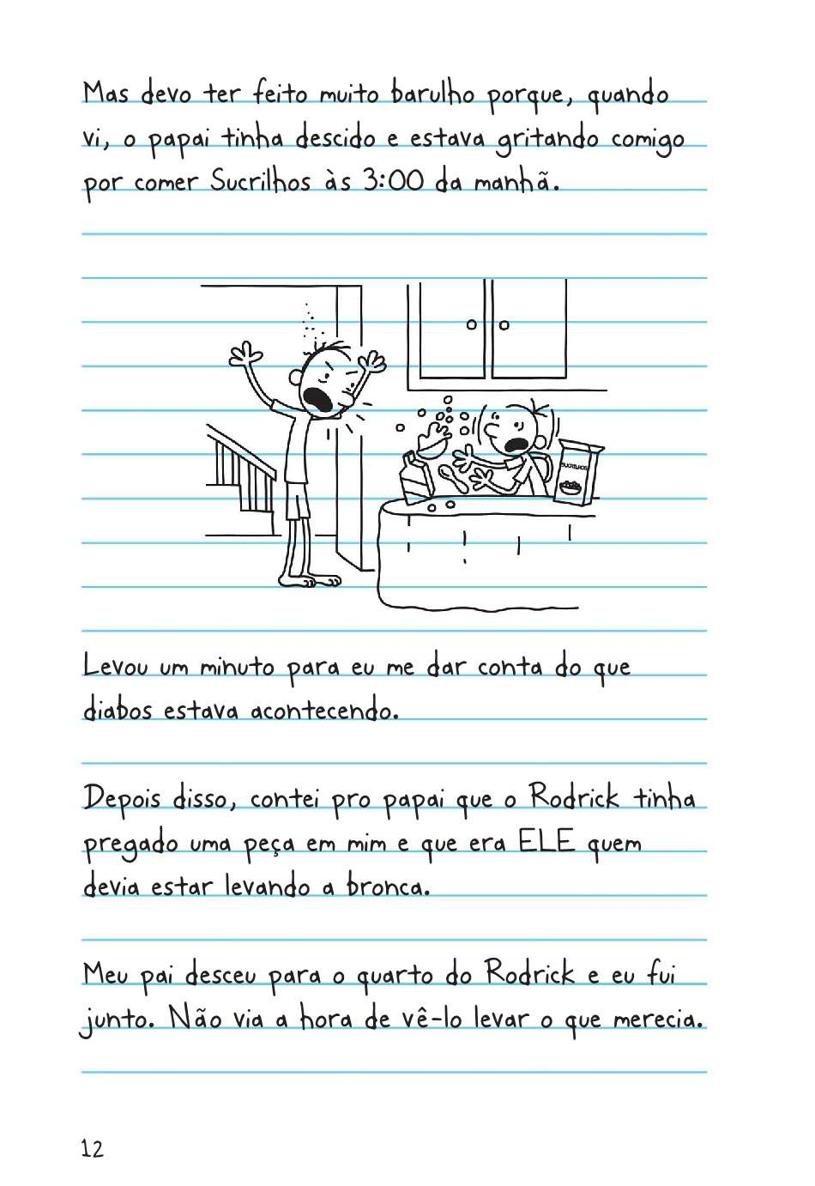 Mas devo ter feito muito barulho porque, quando
vi, o papai tinha descido e estava gritando comigo
por comer Sucrilhos às 3:00 da manhã.
SUCRILHOS
Levou um minuto para eu me dar conta do que
diabos estava acontecendo.
Depois disso, contei pro papai que o Rodrick tinha
pregado uma peça em mim e que era ELE quem
devia estar levando a bronca.
Meu pai desceu para o quarto do Rodrick e eu fui
junto. Não via a hora de vê-lo levar o que merecia.
12